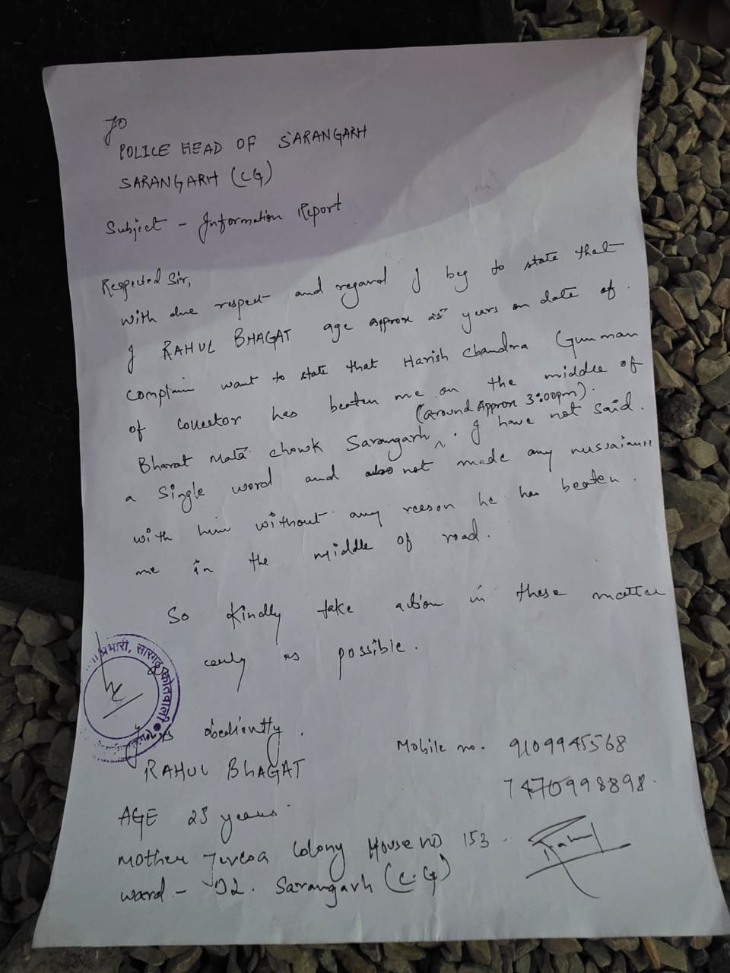 To
POLICE HEAD OF SARANGARH
SARANGARH (CG)
Subject - Information Report
Respected Sir,
With due respect and regard I beg to state that
I RAHUL BHAGAT age approx 25 years on date of.
complain want to state that Harish Chandra Gunman
of collector has beaten me on the middle of
Bharat Mata chowk Sarangarh (around Approx 3:00pm). I have not said.
a single word and also not made any
with him without any reason he has beaten.
me in the middle of road.
So Kindly take action in these matter
early as possible.
प्रभारी, सारंगढ़ कोतवाली
obediently.
RAHUL BHAGAT
Mobile no. 9109945568
7470998898.
AGE 25 years.
Mother Teresa Colony House no 153.
ward - 02. Sarangarh (C.G)
Rahul